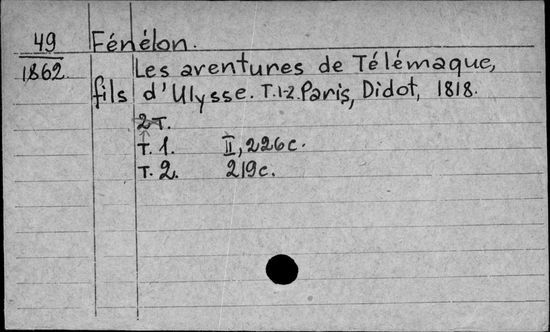 49 Fénélon.
1862 Les aventures de Télémaque,
fils d'Ulysse. T.1-2. Paris, Didot, 1818.
2 т.
T. 1. II, 226 c.
T. 2. 219 c.